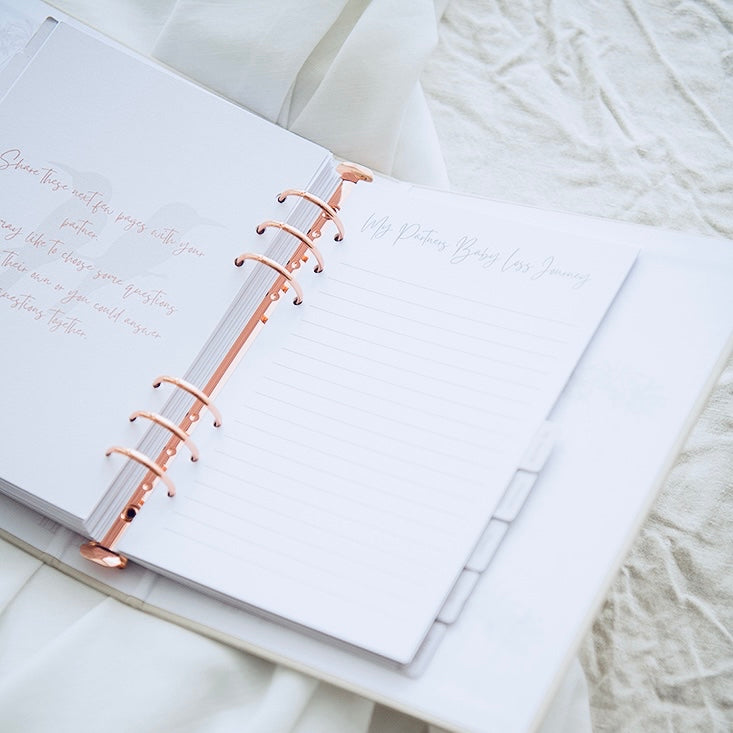 Share these next few pages with your
partner.
may like to choose some questions
their own or you could answer
questions together.
My Partners Baby Loss Journey